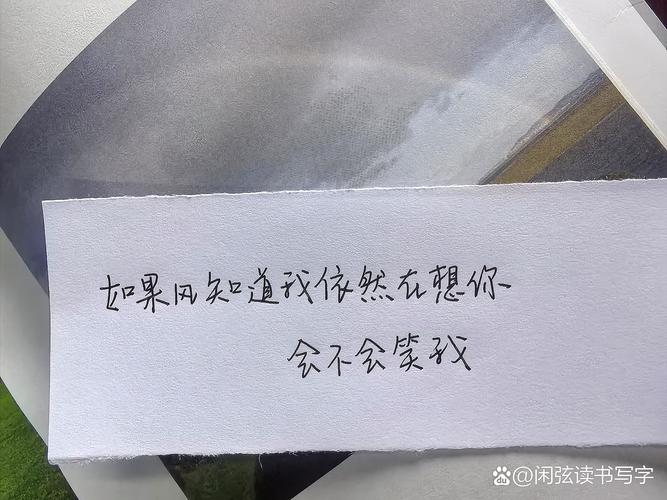 如果风知道我依然在想你
会不会笑我
闲弦读书写字